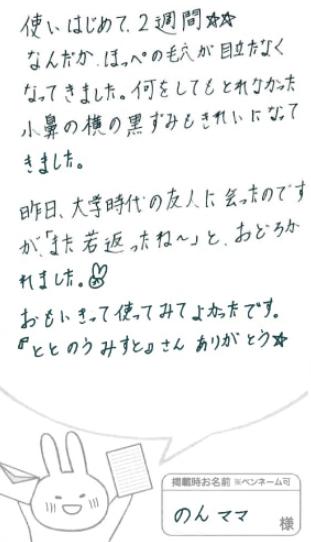 使いはじめて、2週間☆☆
なんだか、ほっぺの毛穴が目立たなく
なってきました。何をしてもとれなかった
小鼻の横の黒ずみもきれいになって
きました。
昨日、大学時代の友人に会ったのです
が、「また若返ったね〜」と、おどろか
れました。
おもいきって使ってみてよかったです。
『ととのうみすと』さん ありがとう☆
掲載時お名前 ※ペンネーム可
のんママ 様